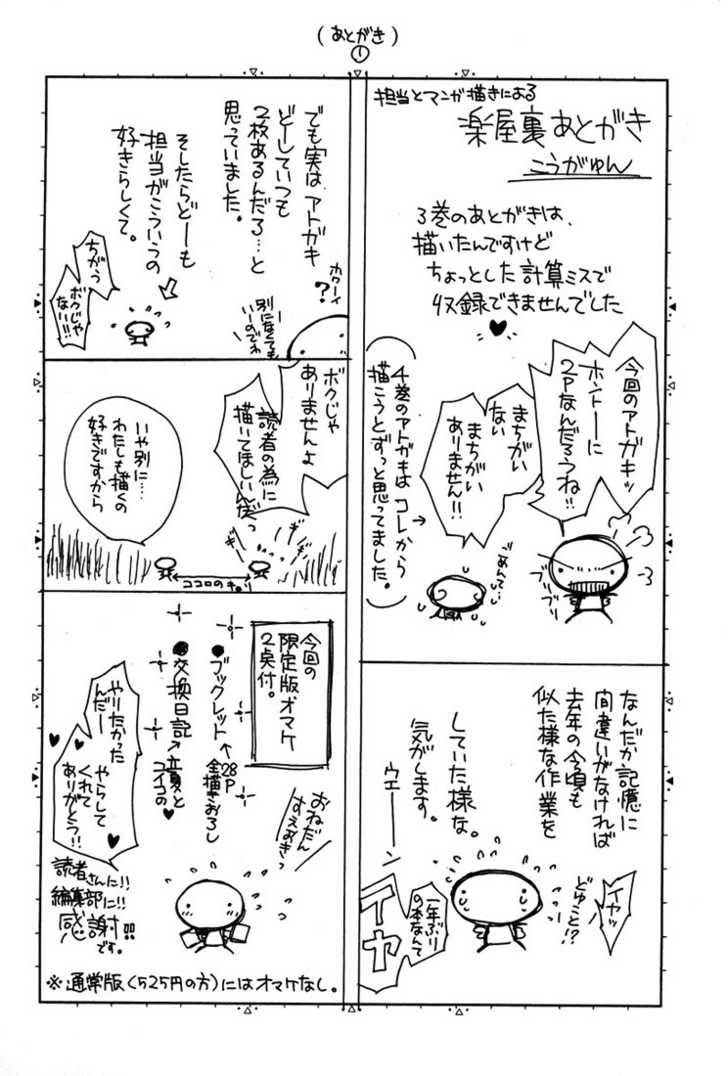 (あとがき)
①
担当とマンガ描きによる
楽屋裏あとがき
こうがゆん
3巻のあとがきは、
描いたんですけど
ちょっとした計算ミスで
収録できませんでした
♥
今回のアトガキッ
ホントーに
2Pなんだろうね!!
まちがい
ない
まちがい
ありません!!
ごめんて…
プリプリ
4巻のアトガキは コレから
描こうとずっと思ってました。
なんだか記憶に
間違いがなければ
去年の今頃も
似た様な作業を
していた様な。
気がします。
ウエーーン
イヤッ
どゆこと!?
一年ぶり
の本なんて
イヤ
でも実は アトガキ
どーしていつも
2枚あるんだろ…と
思っていました。
カワーイ
?
別になくても
いーのでわ
そしたらどーも
担当がこういうの
好きらしくて。
ちがう
ボクじゃ
ない!!
ボクじゃ
ありませんよ
読者の為に
描いてほしいんだっ
ギギギ
いや別に…
わたしも描くの
好きですから
ココロのキョリ
今回の
限定版オマケ
2点付。
●ブックレット
←28P
全描きおろし
●交換日記
→立夏と
コイコの♥
やりたかった
んだー
やらして
くれて
ありがとう!!
おねだん
すえおきっ
読者さんに!!
編集部に!!
感謝です。!!
※通常版(525円の方)にはオマケなし。